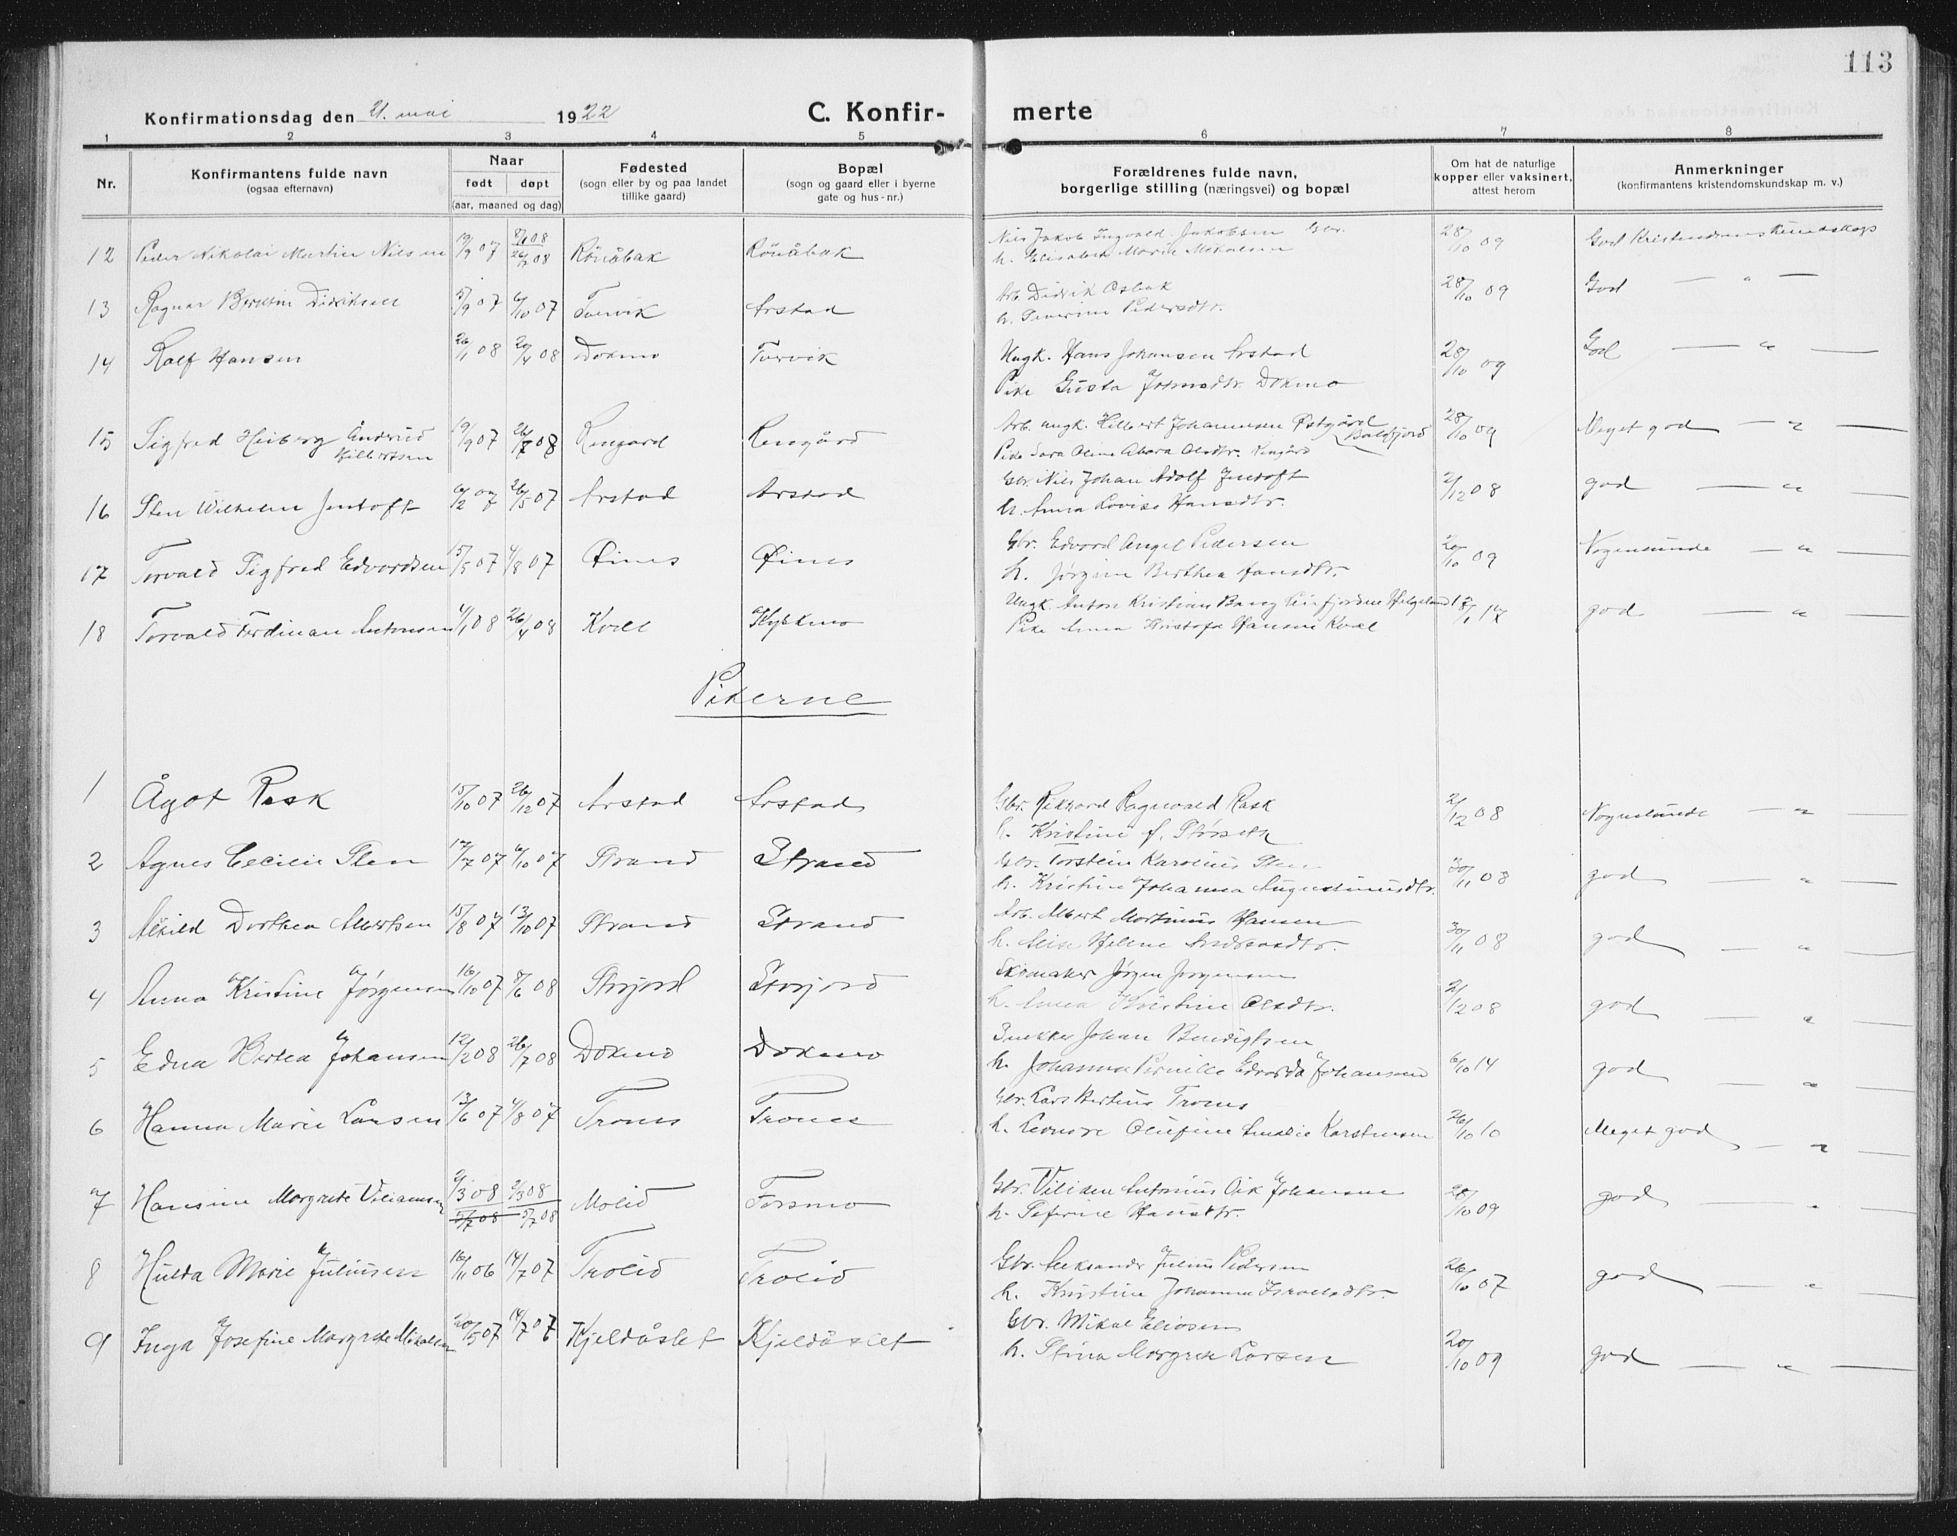 113
Konfirmationsdag den 21. mai 1922
C. Konfirmerte
1 2 3 4 5 6 7 8
Nr.
Konfirmantens fulde navn
(ogsaa efternavn)
Naar
født døpt
(aar, maaned og dag)
Fødested
(sogn eller by og paa landet
tillike gaard)
Bopæl
(sogn og gaard eller i byerne
gate og hus-nr.)
Forældrenes fulde navn,
borgerlige stilling (næringsvei) og bopæl
Om hat de naturlige
kopper eller vaksinert,
attest herom
Anmerkninger
(konfirmantens kristendomskundskap m. v.)
12 Peder Nikolai Martin Nilsen 19/9 07 26/7 08 Rönåbak Rönåbak Nils Jakob Ingvald Jakobsen Gbr. 28/10 09 God Kristendomskundskap
h. Elisabeth Marie Mikalsen
13 Ragnar Berntin Didriksen 5/9 07 6/10 07 Torvik Arstad Arb. Didrik Osbak 28/10 09 God — " —
h. Severine Pedersdtr.
14 Ralf Hansen 26/1 08 20/4 08 Doxmo Torvik Ungk. Hans Johansen Arstad 28/10 09 God — " —
Pike Gusta Johnsdtr. Doxmo
15 Sigfred Heiberg Anderud Hilbertsen 19/9 07 26/7 08 Rengård Rengård Arb. ungk. Hilbert Johannesen Østgård Balsfjord 28/10 09 Meget god — " —
Pike Sara Oline Abara Olsdtr. Rengård
16 Sten Wilhelm Jentoft 6/2 07 26/5 07 Arstad Arstad Gbr. Nils Johan Adolf Jentoft 2/12 08 god — " —
h. Anna Lovise Hansdtr.
17 Torvald Sigfred Edvardsen 15/5 07 4/8 07 Øines Øines Gbr. Edvard Angel Pedersen 20/10 09 Nogenlunde — " —
h. Jørgine Berthea Hansdtr.
18 Torvald Ferdinan Antonsen 4/1 08 26/4 08 Kvæl Hykkmo Ungk. Anton Kristian Bang Leirfjorden Helgeland god — " —
Pike Anna Kristofa Hansen Kvæl
Pikerne
1 Ågot Rask 15/10 07 26/12 07 Arstad Arstad Gbr. Rikard Ragnvald Rask 2/12 08 Nogenlunde — " —
h. Kristine f. Thorseth
2 Agnes Cecilie Sten 17/7 07 6/10 07 Strand Strand Gbr. Torstein Karolius Sten 30/11 08 god — " —
h. Kristine Johanna Augustinusdtr.
3 Alhild Dorthea Albertsen 15/8 07 13/10 07 Strand Strand Arb. Albert Martinus Hansen 30/11 08 god — " —
h. Elise Helene Andreasdtr.
4 Anna Kristine Jørgensen 16/10 07 8/6 08 Storjord Storjord Skomaker Jørgen Jørgensen 2/12 08 god — " —
h. Anna Kristine Olsdtr.
5 Edna Bertea Johansen 12/2 08 26/7 08 Doxmo Doxmo Snekker Johan Bendigtsen 6/10 14 god — " —
h. Johanna Pernille Edvarda Johansen
6 Hanna Marie Larsen 13/6 07 4/8 07 Trones Trones Gbr. Lars Bertius Trones 26/10 10 Meget god — " —
h. Leonore Olufine Amalie Karstensen
7 Hansine Margrete Viliamsen 2/3 08 2/3 08 Molid Forsmo Gbr. Viliden Antonius Eik Johansen 28/10 09 god — " —
5/7 08 5/7 08 h. Peterine Hansdtr.
8 Hulda Marie Juliussen 16/11 06 14/7 07 Trolid Trolid Gbr. Aleksander Julius Pedersen 26/10 07 god — " —
h. Kristine Johanna Israelsdtr.
9 Inga Josefine Margrete Mikalsen 20/5 07 14/7 07 Kjeldåslet Kjeldåslet Gbr. Mikal Eliasen 20/10 09 god — " —
h. Stina Margrete Larsen